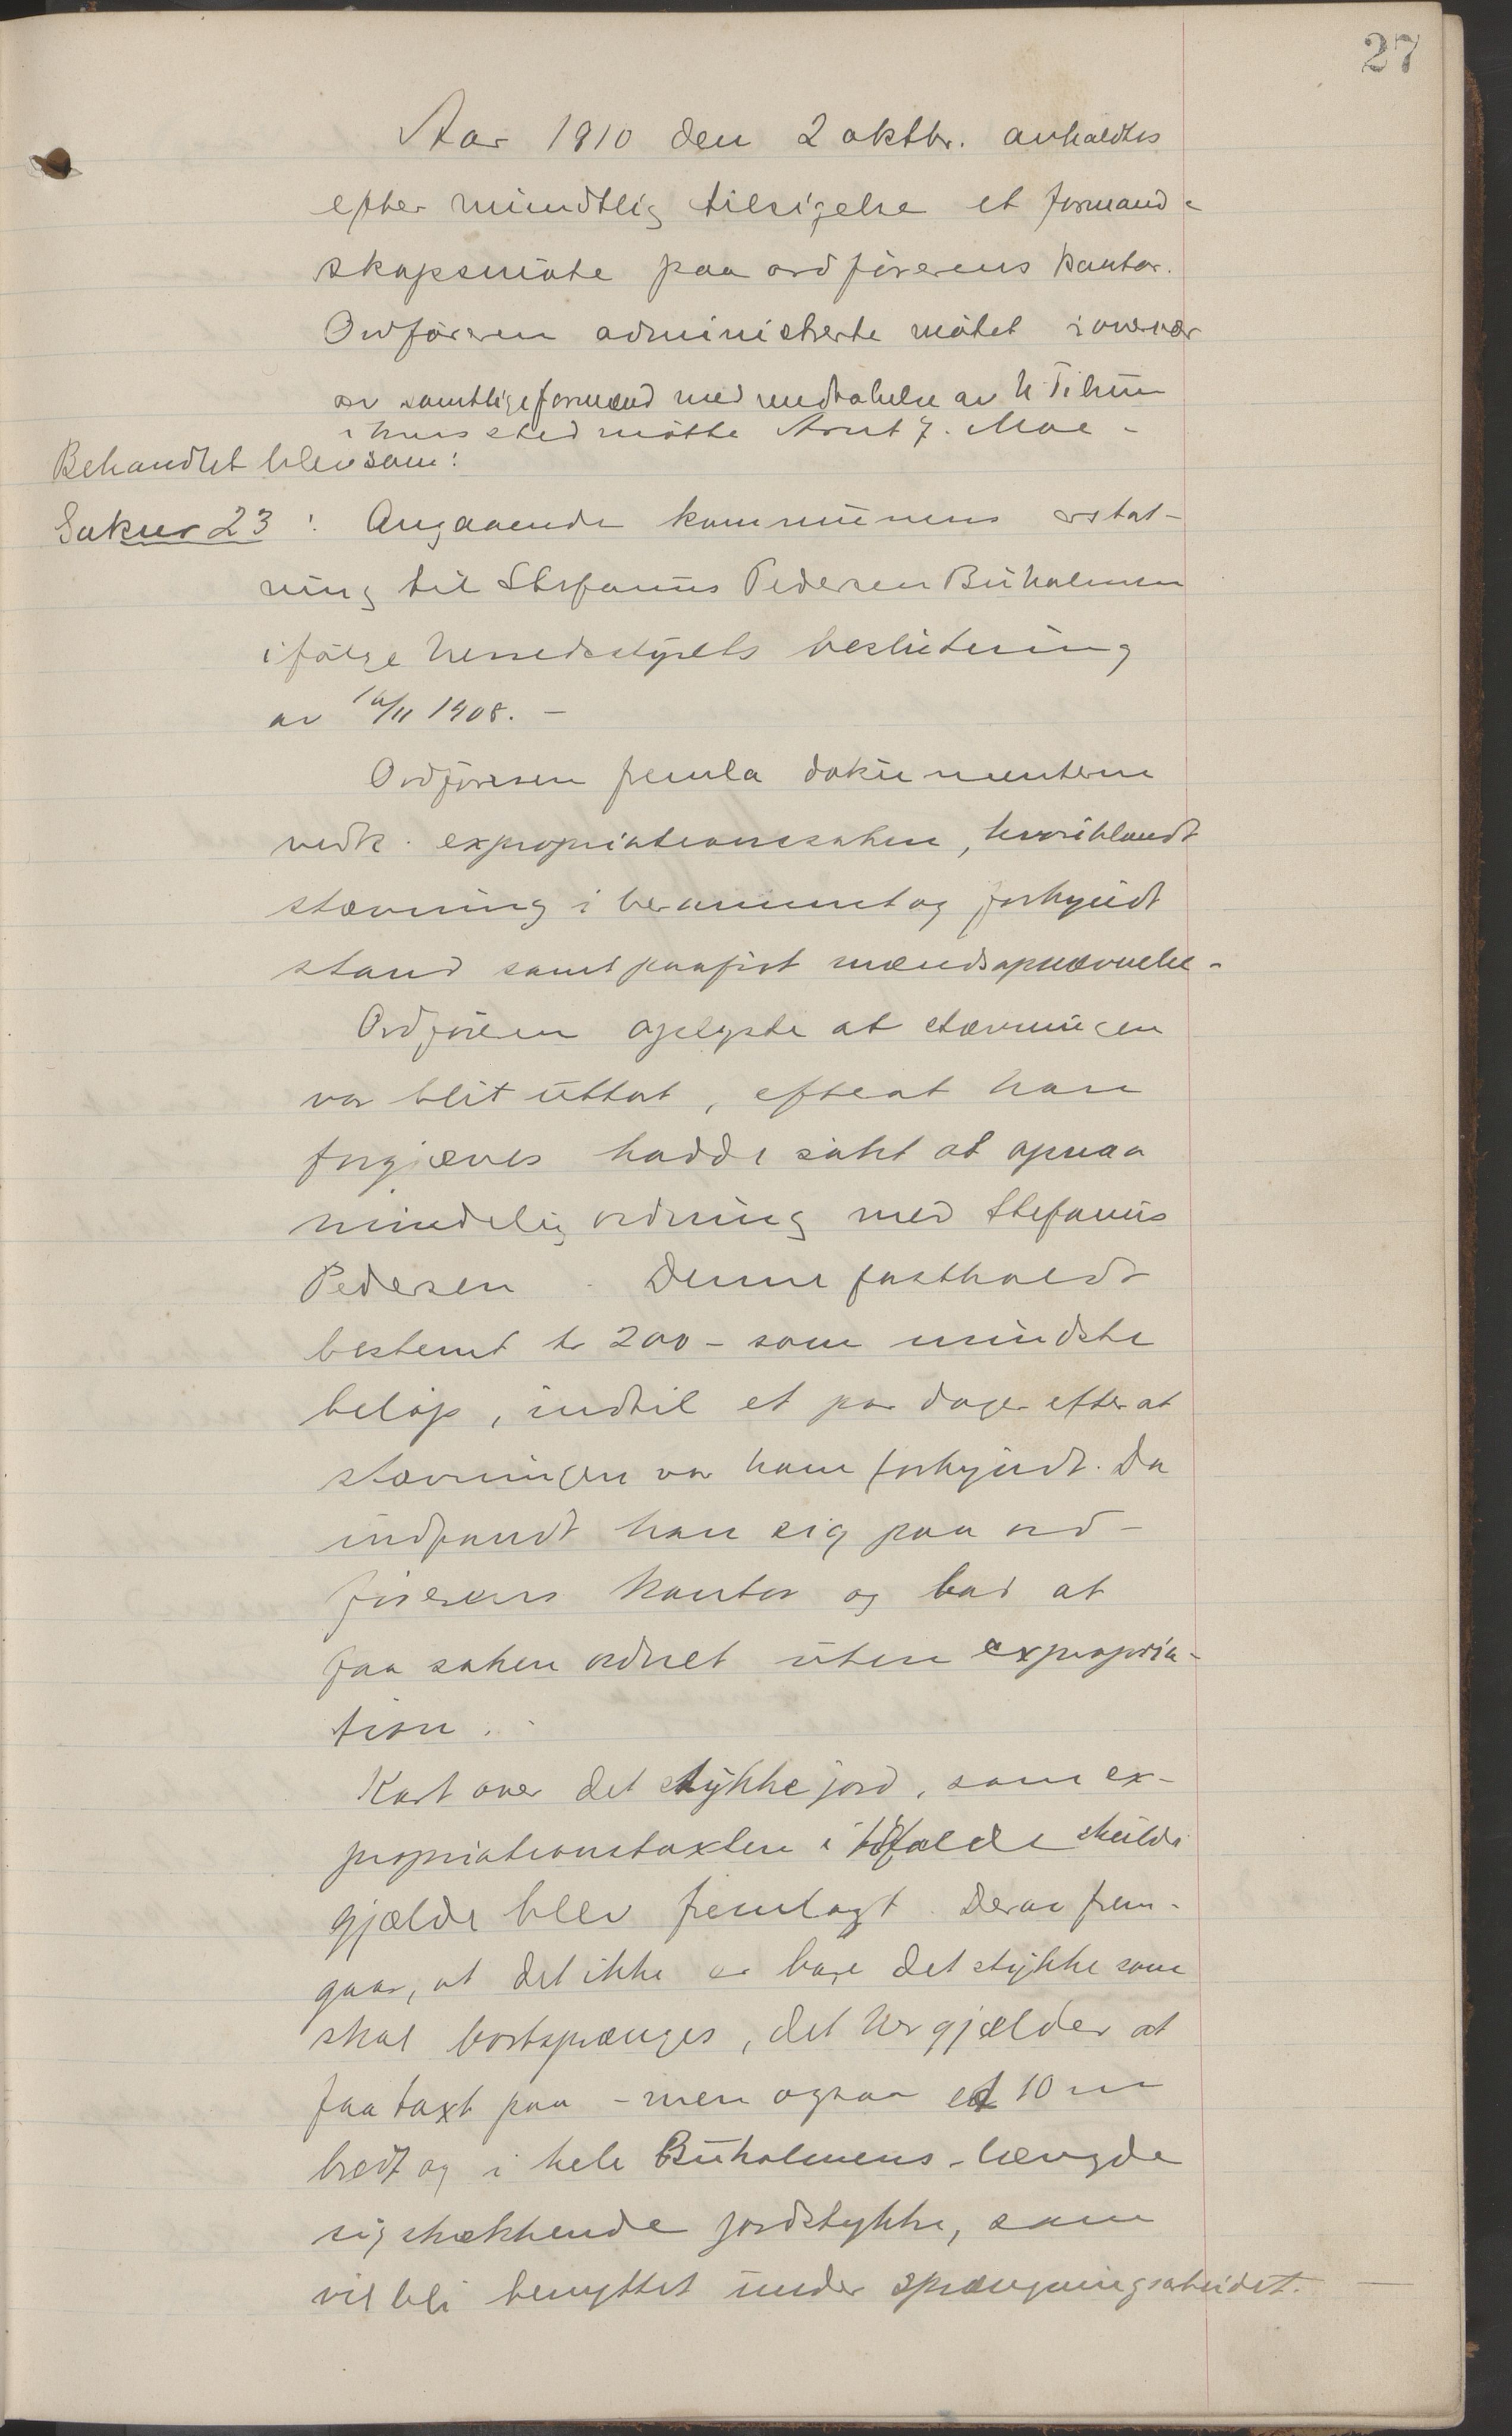 27
Aar 1910 den 2 oktbr. avholdtes
efter mundtlig tilsigelse et formand-
skapsmøte paa ordførerens kontor.
Ordføreren administrerte møtet i overvær
av samtlige formænd med undtakelse av
i hvis sted møtte Arnt J. Moe -
Behandlet blev som:
Saknr 23: Angaaende kommunens erstat-
ning til Stefanus Pedersen Buholmen
ifølge herredsstyrets beslutning
av /11 1908. -
Ordføreren fremla dokumenterne
vedk. expropriationssaken, hvoriblandt
stævning i berammet og forkyndt
stand samt paaført mændsopnævnelse.
Ordføreren oplyste at stævningen
var blit uttat, efterat han
forgjæves hadde søkt at opnaa
mindelig ordning med Stefanus
Pedersen. Denne fastholdt
bestemt kr 200 - som mindste
beløp, indtil et par dager efter at
stævningen var ham forkyndt. Da
indfandt han sig paa ord-
førerens kontor og bad at
faa saken ordnet uten expropria-
tion.
Kart over det stykke jord, som ex-
propriationstaxten i tilfælde skulde
gjælde blev fremlagt. Derav frem-
gaar, at det ikke er bare det stykke som
skal bortsprænges, det her gjælder at
faa taxt paa - men ogsaa et 10 m
bredt og i hele Buholmens længde
sig strækkende jordstykke, som
vil bli benyttet under sprængningsarbeidet. -